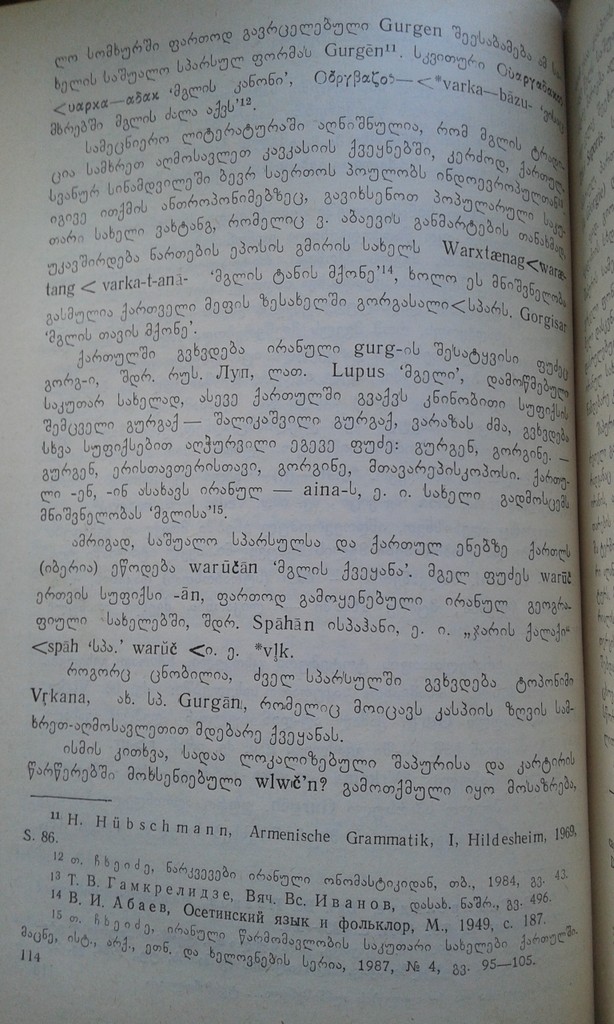 ლო სომხურში ფართოდ გავრცელებული Gurgen შეესაბამება ამ სა-
ხელის საშუალო სპარსულ ფორმას Gurgēn¹¹. სკვითური
‘მგლის კანონი’, <*varka—bāzu-
მხრებში მგლის ძალა აქვს’¹².
სამეცნიერო ლიტერატურაში აღნიშნულია, რომ მგლის ტრადი-
ცია სამხრეთ აღმოსავლეთ კავკასიის ქვეყნებში, კერძოდ, ქართულ-
სვანურ სინამდვილეში ბევრ საერთოს პოულობს ინდოევროპულთან¹³
იგივე ითქმის ანთროპონიმებზეც, გავიხსენოთ პოპულარული საკუ-
თარი სახელი ვახტანგ, რომელიც ვ. აბაევის განმარტების თანახმად
უკავშირდება ნართების ეპოსის გმირის სახელს Warxtænag<waræ-
tang < varka-t-anā- ‘მგლის ტანის მქონე’¹⁴, ხოლო ეს მნიშვნელობა
გასმულია ქართველი მეფის ზესახელში გორგასალი<სპარს. Gorgisar
‘მგლის თავის მქონე’.
ქართულში გვხვდება ირანული gurg-ის შესატყვისი ფუძე
გორგ-ი, შდრ. რუს. Луп, ლათ. Lupus ‘მგელი’, დამოწმებული
საკუთარ სახელად, ასევე ქართულში გვაქვს კნინობითი სუფიქსის
შემცველი გურგაქ — შალიკაშვილი გურგაქ, ვარაზას ძმა, გვხვდება
სხვა სუფიქსებით აღჭურვილი ეგევე ფუძე: გურგენ, გორგინე. —
გურგენ, ერისთავთერისთავი, გორგინე, მთავარეპისკოპოსი. ქართუ-
ლი -ენ, -ინ ასახავს ირანულ — aina-ს, ე. ი. სახელი გადმოსცემს
მნიშვნელობას ‘მგლისა’¹⁵.
ამრიგად, საშუალო სპარსულსა და ქართულ ენებზე ქართლს
(იბერია) ეწოდება warūčān ‘მგლის ქვეყანა’. მგელ ფუძეს warūč
ერთვის სუფიქსი -ān, ფართოდ გამოყენებული ირანულ გეოგრა-
ფიული სახელებში, შდრ. Spāhān ისპაჰანი, ე. ი. „ჯარის ქალაქი“
<spāh ‘სპა.’ warūč <ი. ე. *vl̥k.
როგორც ცნობილია, ძველ სპარსულში გვხვდება ტოპონიმი
Vr̥kana, ახ. სპ. Gurgān, რომელიც მოიცავს კასპიის ზღვის სამ-
ხრეთ-აღმოსავლეთით მდებარე ქვეყანას.
ისმის კითხვა, სადაა ლოკალიზებული შაპურისა და კარტირის
წარწერებში მოხსენიებული wlwč’n? გამოთქმული იყო მოსაზრება,
¹¹ H. Hübschmann, Armenische Grammatik, I, Hildesheim, 1969,
S. 86.
¹² თ. ჩხეიძე, ნარკვევები ირანული ონომასტიკიდან, თბ., 1984, გვ. 43.
¹³ Т. В. Гамкрелидзе, Вяч. Вс. Иванов, დასახ. ნაშრ., გვ. 496.
¹⁴ В. И. Абаев, Осетинский язык и фольклор, М., 1949, с. 187.
¹⁵ თ. ჩხეიძე, ირანული წარმომავლობის საკუთარი სახელები ქართულში.
მაცნე, ისტ., არქ., ეთნ. და ხელოვნების სერია, 1987, № 4, გვ. 95—105.
114